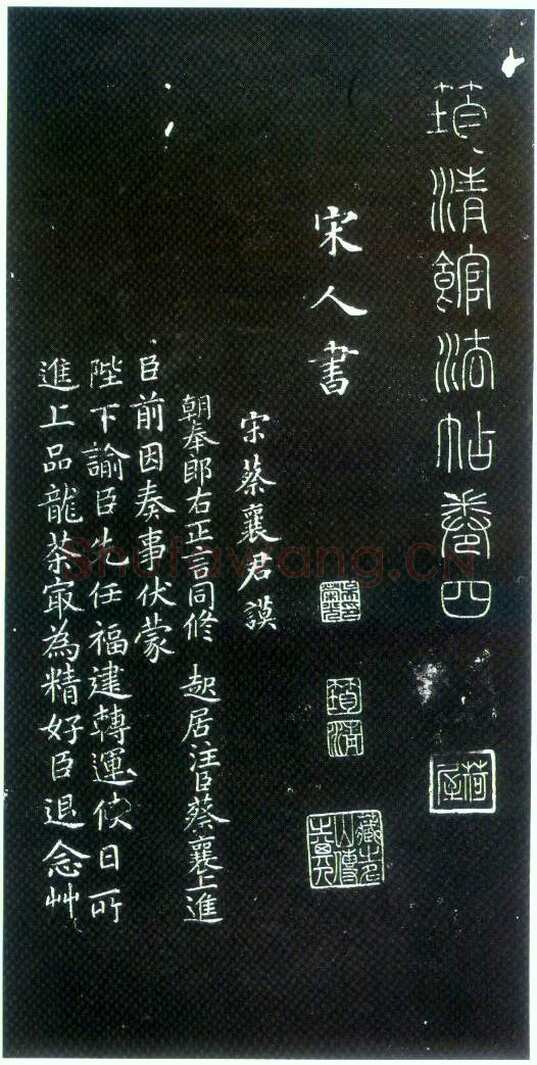 筠清館法帖卷四
荷屋
宋人書
筠清
藏之名山傳之其人
宋蔡襄君謨
朝奉郎右正言同修 起居注臣蔡襄上進
臣前因奏事伏蒙
陛下諭臣先任福建轉運使日所
進上品龍茶㝡為精好臣退念艸
Shufawang.CN